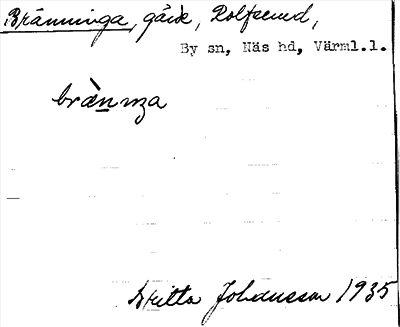 Bränninga, gård, Rolfserud,
By sn, Näs hd, Värml.l.
brän̲nıŋa
Britta Johansson 1935